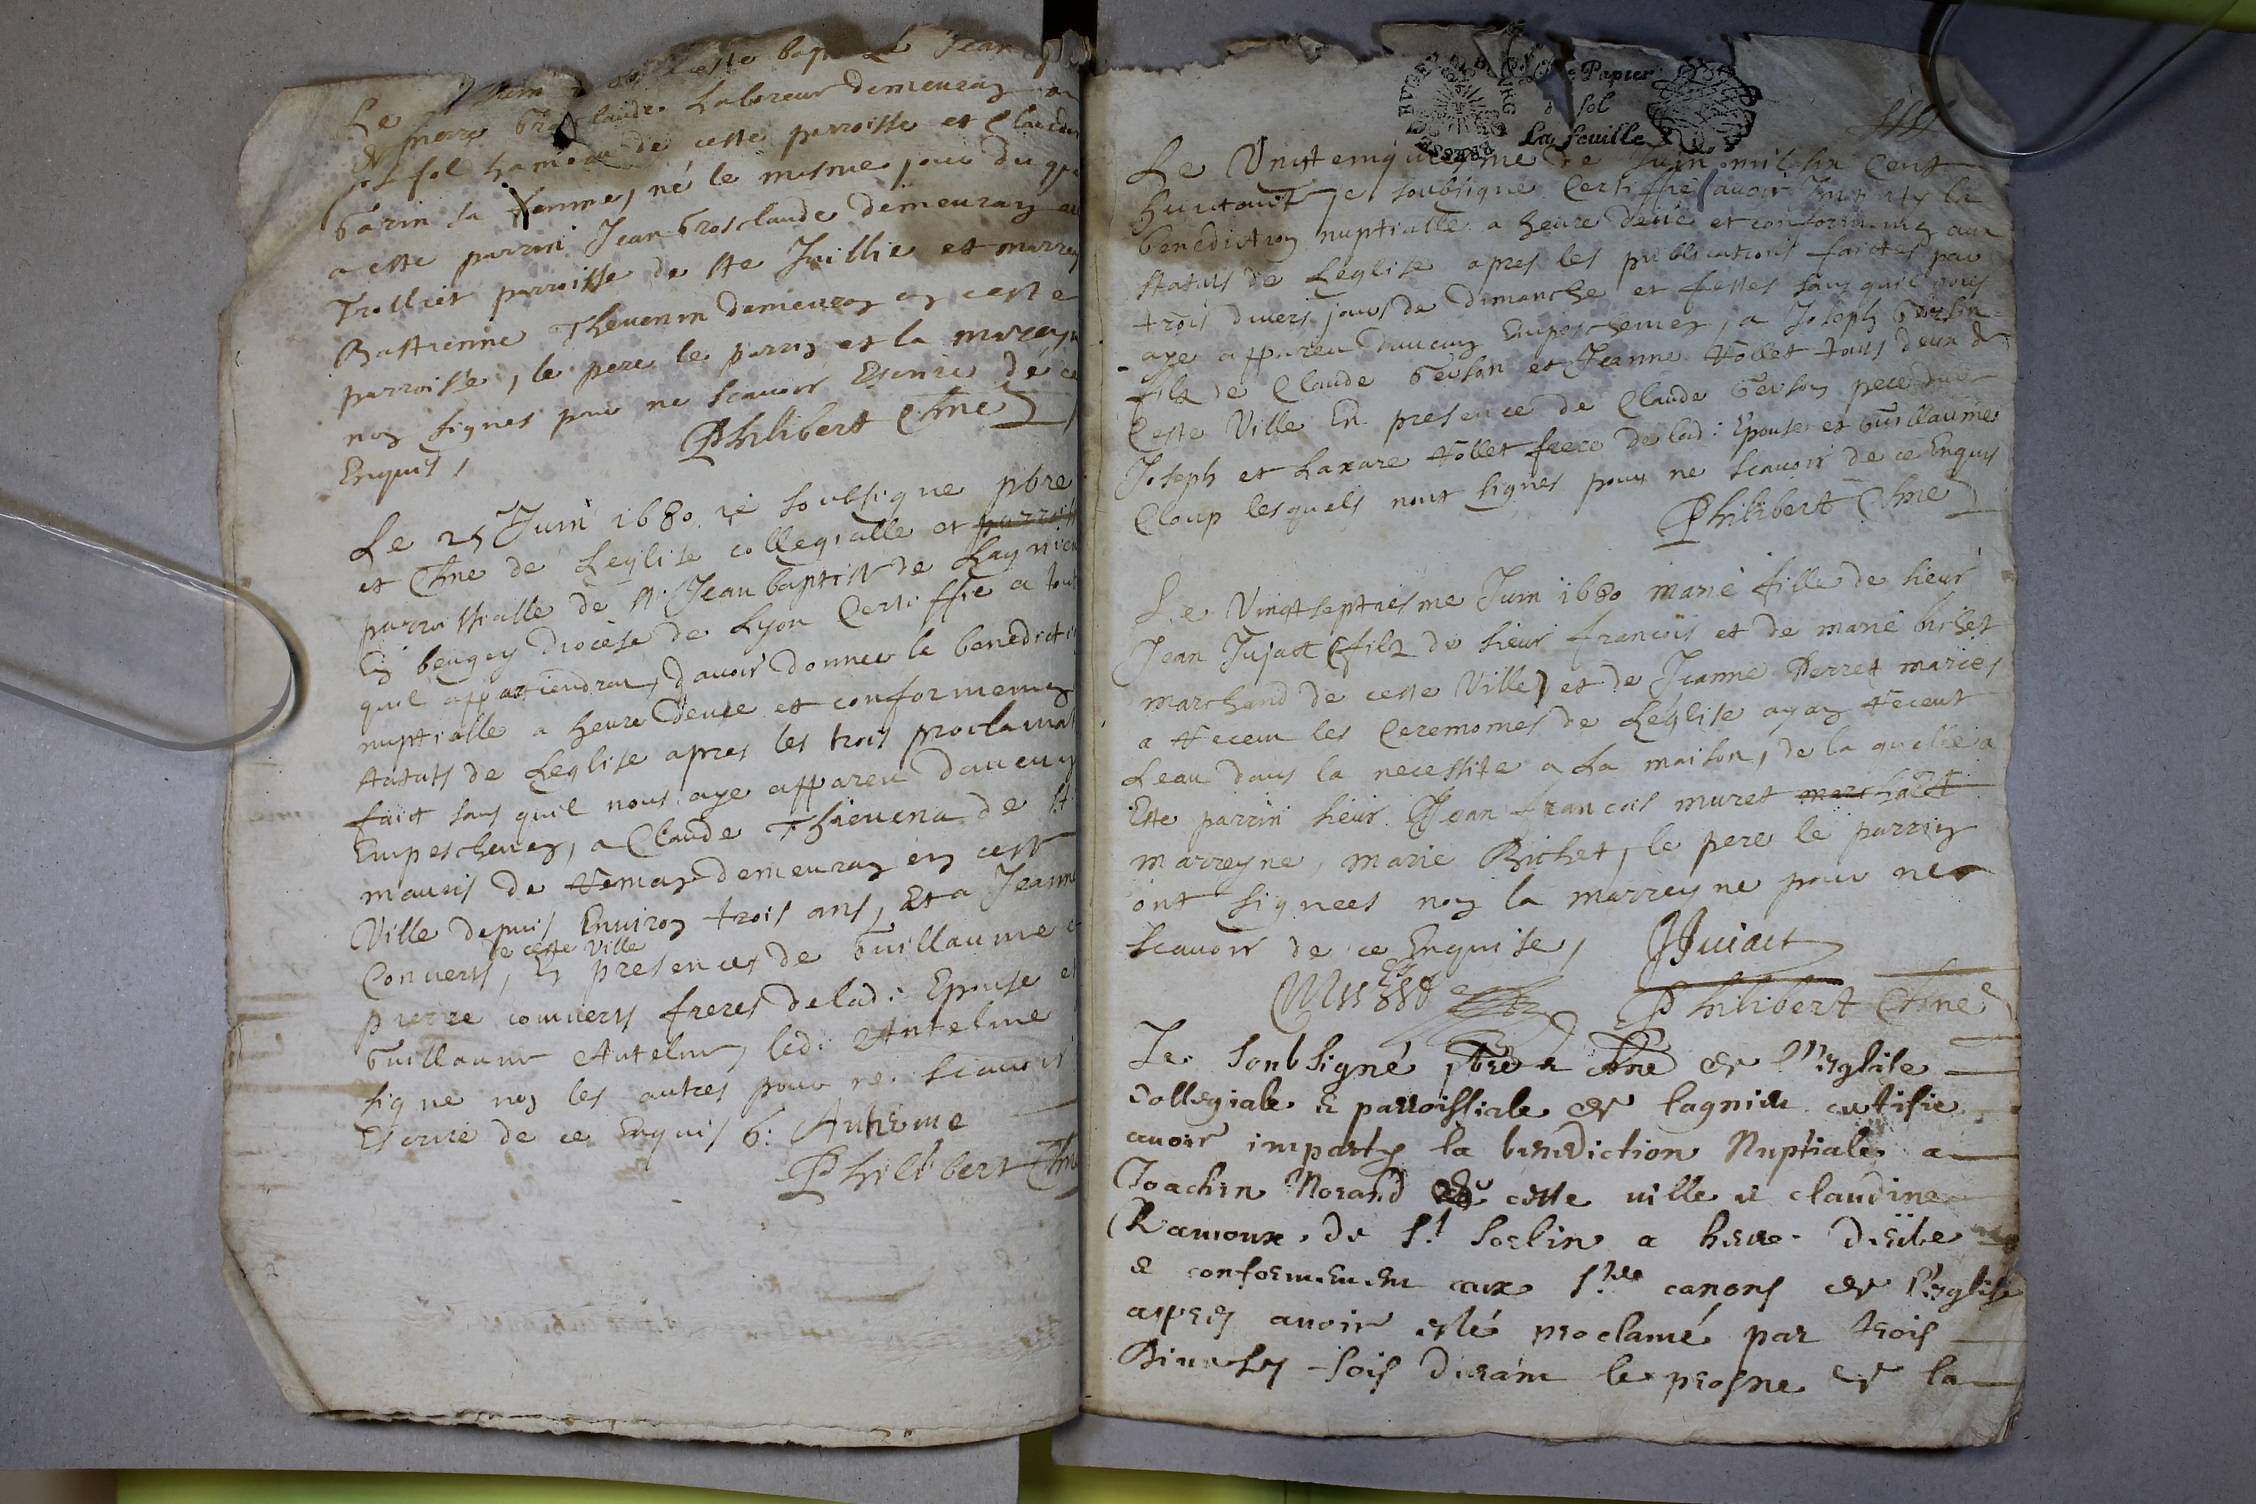 Le juin a esté bapt Jean
de pierre Grosclaude Laboreur demeuran
sol hameau de ceste parroisse et Claudin
Garin sa femme, né le mesme jour duqu
a esté parrin Jean Grosclaude demeuran au
Trolliet parroisse de Ste Juillie et marrey
Bastienne Thevenin demeuran en ceste
parroisse, le pere le parrin et la marreyn
non signes pour ne scavoir Escrire de ce
Enquis, Philibert Chne
Le 25 Juin 1680 je soubsigne pbre
et Chne de Leglise collegialle et parroiss
parroissialle de St Jean baptiste de Lagnieu
En beugey diocese de Lyon Certiffie a tout
quil appartiendrat, davoir donnee la benedicti
nuptialle a heure deuee et conformemen
statuts de Leglise apres les trois proclamat
fait sans quil nous aye appareu daucun
Empeschemen, a Claude Thievena de St
mauris de Remen demeuran en ceste
Ville depuis Environ trois ans, Et a Jeanne
de ceste Ville
Convers, En presences de Guillaume e
pierre convers freres de lad: Epouse e
Guillaume Antelme, led: Antelme
signe non les autres pour ne scavoir
Escrire de ce Enquis G: Antelme
Philibert Chne
Papier
sol
La feuille
BUREAU BOURG
Le Vintcinquiesme de Juin mil six Cent
huictant je soubsigne Certiffie avoir Imparty la
benediction nuptialle a heure deue et conformemen aux
statuts de Leglise apres les publications faictes par
trois divers jours de dimanche et festes sans quil nous
aye appareu daucun Empeschemen, a Joseph Gerson
filz de Claude Gerson et Jeanne Rollet tous deux de
Ceste Ville En presence de Claude Gerson pere dud
Joseph et Laxare Rollet frere de lad: Epouse et Guillaume
Cloup lesquels nont signes pour ne scavoir de ce Enquis
Philibert Chne
Le Vingtseptiesme Juin 1680 marie fille de sieur
Jean Jujact (filz de sieur francois et de marie bichet
marchand de ceste Ville) et de Jeanne Perret maries
a Receu les Ceremonies de Leglise ayan Receut
Leau dans la necessite a La maison, de la quelle a
Este parrin sieur Jean francois muret marchaet
marreyne, marie Bichet, le pere le parrin
ont signees non la marreyne pour ne
scavoir de ce Enquise, JJuiact
Philibert Chne
Je soubsigné pbre & chne de l'Esglise
Collegiale & parroissiale de lagnieu certifie
avoir imparty la benediction Nuptiale a
Joachin Morand de ceste ville & claudine
Ramoux de St Sorlin a heure deüe
& conformement aux Sts canons de l'Esglise
apres avoir esté proclamé par trois
Diverses fois durant le prosne de la